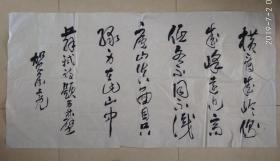 横看成岭侧
成峰远近高
低各不同不识
庐山真面目只
缘身在此山中
苏轼诗题西林壁
2019-7-2